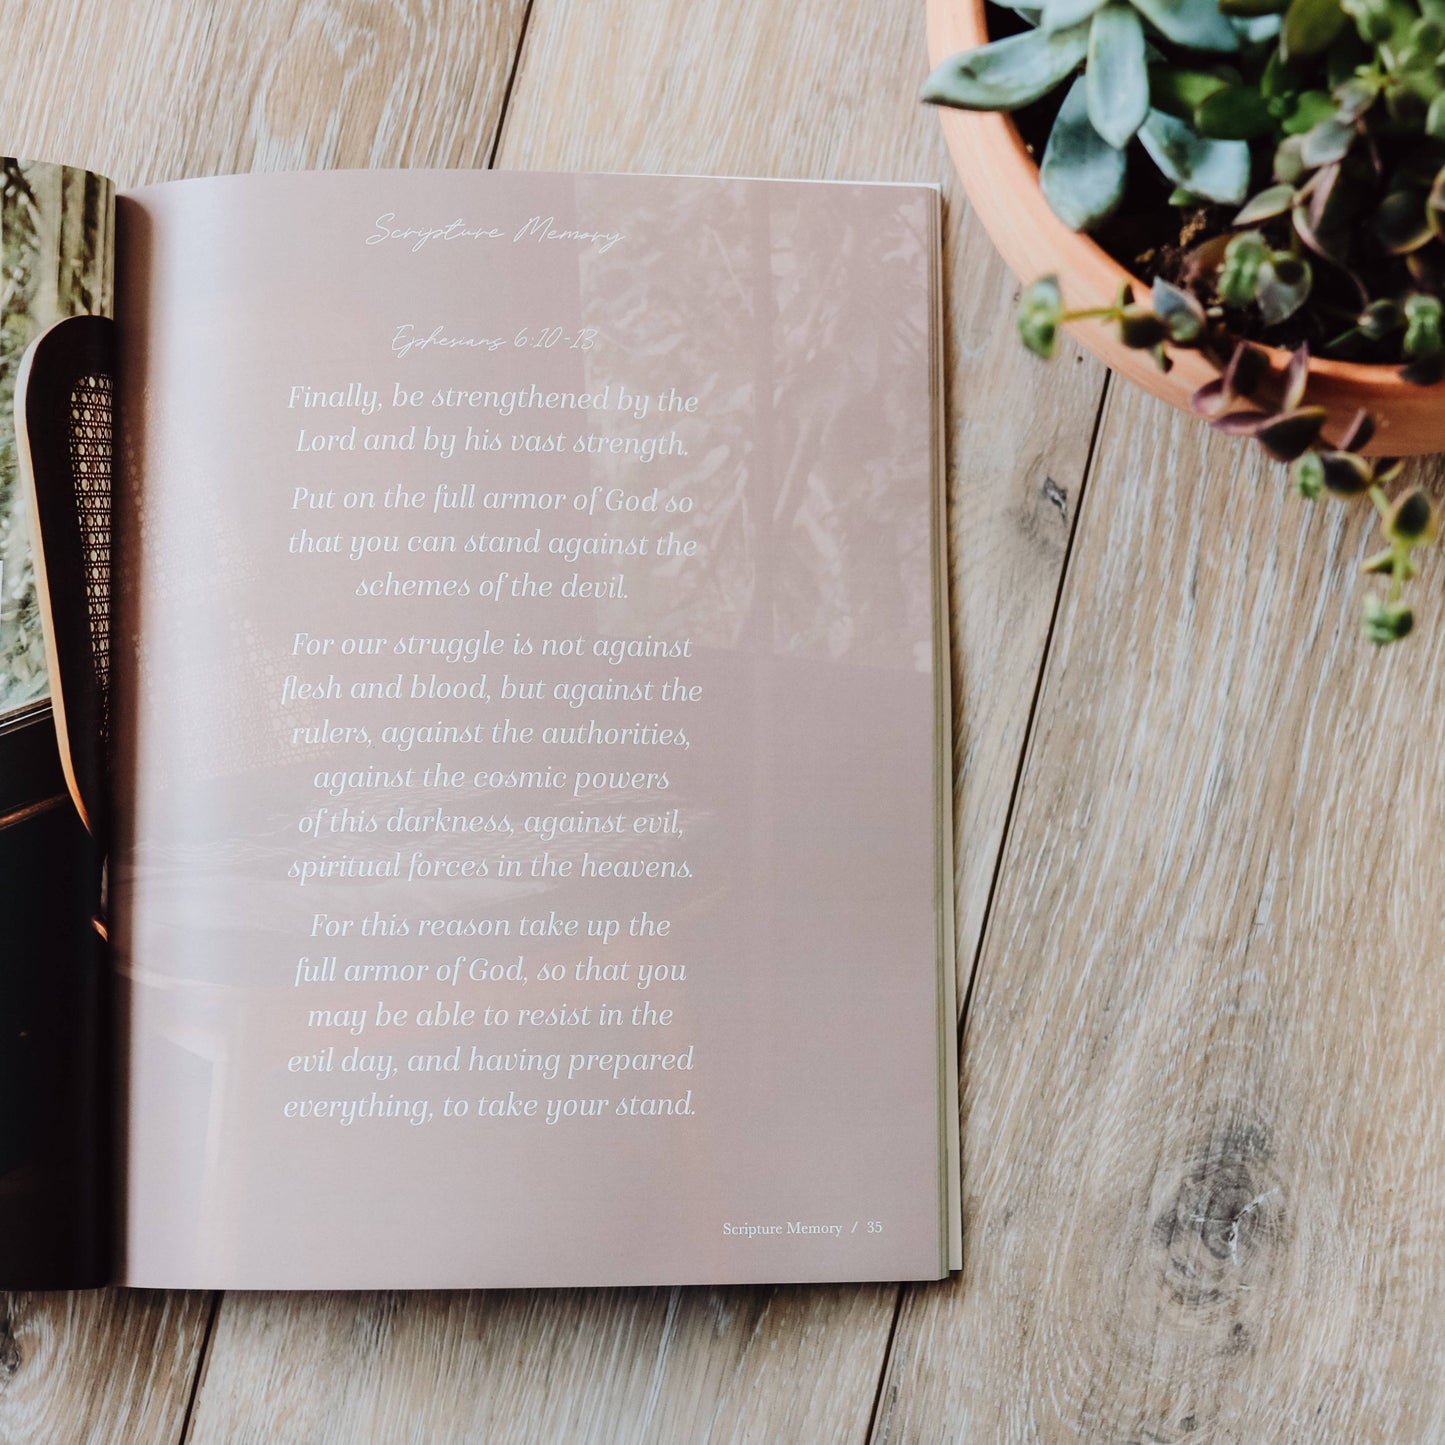 Scripture Memory
Ephesians 6:10-13
Finally, be strengthened by the
Lord and by his vast strength.
Put on the full armor of God so
that you can stand against the
schemes of the devil.
For our struggle is not against
flesh and blood, but against the
rulers, against the authorities,
against the cosmic powers
of this darkness, against evil,
spiritual forces in the heavens.
For this reason take up the
full armor of God, so that you
may be able to resist in the
evil day, and having prepared
everything, to take your stand.
Scripture Memory / 35